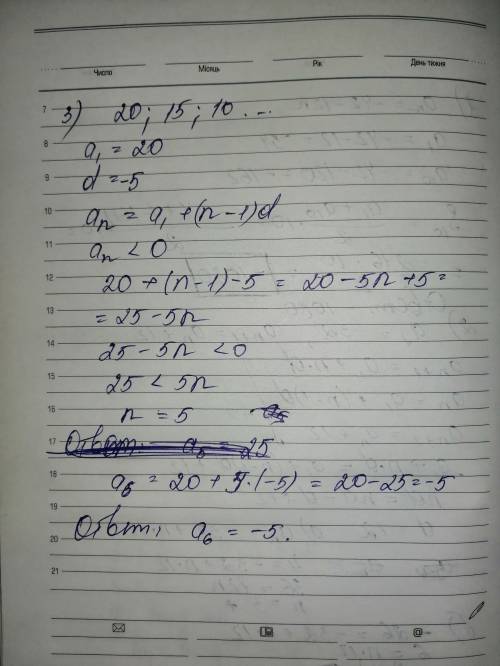 Число Місяць Рік День тижня
7 3) 20; 15; 10 ...
8 a₁ = 20
9 d = -5
10 aₙ = a₁ + (n - 1)d
11 aₙ < 0
12 20 + (n - 1) - 5 = 20 - 5n + 5 =
13 = 25 - 5n
14 25 - 5n < 0
15 25 < 5n
16 n = 5
17 Ответ. a₅ = 25
18 a₆ = 20 + 5·(-5) = 20 - 25 = -5
19
20 Ответ: a₆ = -5.
21
@